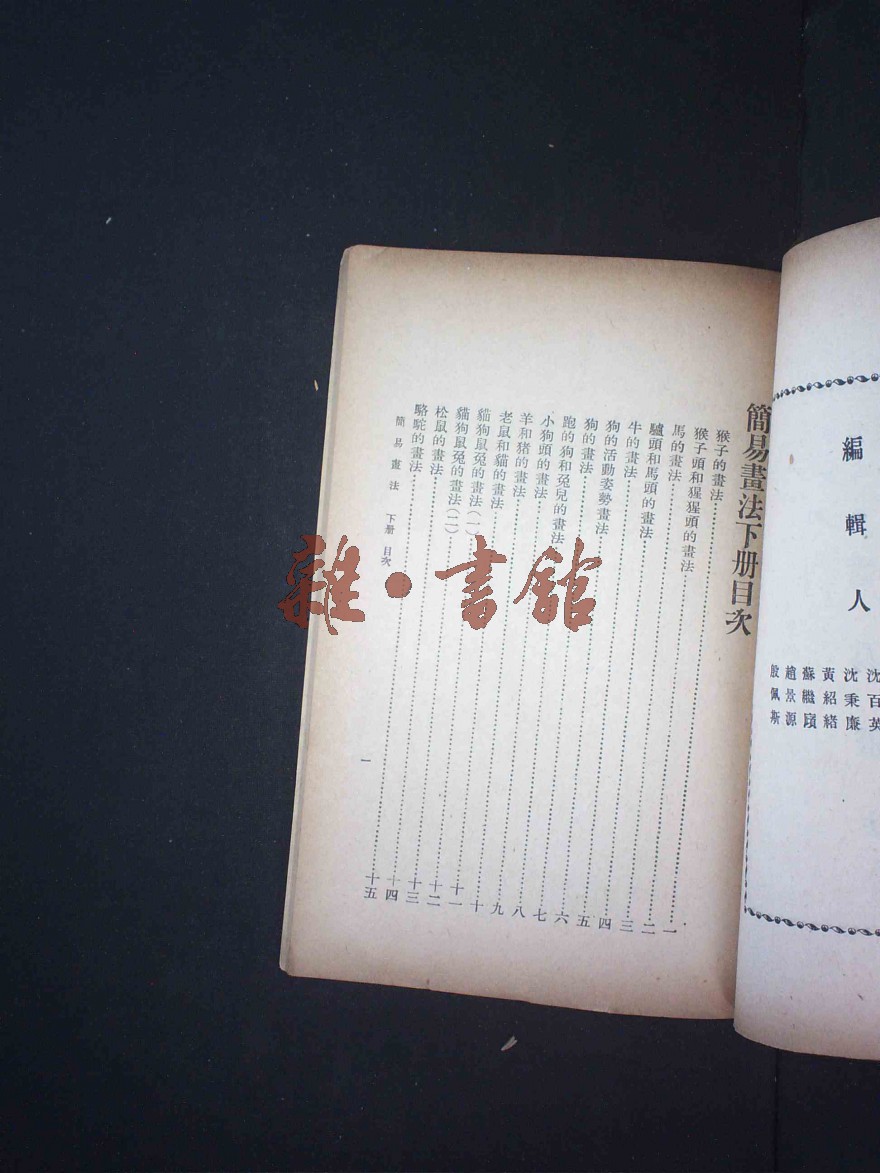 編輯人
沈百英
沈秉廉
黃紹緒
蘇繼廎
趙景源
殷佩斯
簡易畫法下册目次
猴子的畫法……一
猴子頭和猩猩頭的畫法……二
馬的畫法……三
驢頭和馬頭的畫法……四
牛的畫法……五
狗的活動姿勢畫法……六
狗的畫法……七
跑的狗和兔兒的畫法……八
小狗頭的畫法……九
羊和豬的畫法……十
老鼠和貓的畫法……十一
貓狗鼠兔的畫法(一)……十二
貓狗鼠兔的畫法(二)……十三
松鼠的畫法……十四
駱駝的畫法……十五
簡易畫法 下册 目次
一
雜·書館